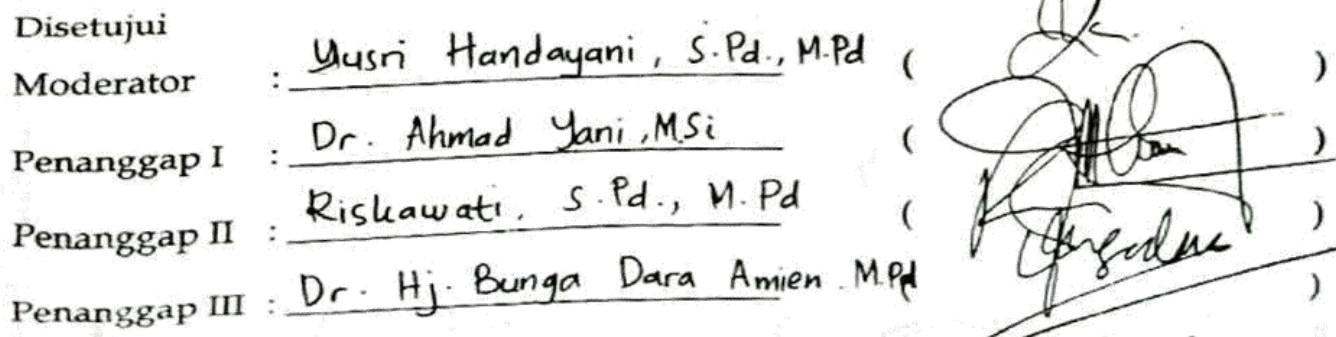 Disetujui
Moderator : Yusri Handayani, S.Pd., M.Pd ( )
Penanggap I : Dr. Ahmad Yani, M.Si ( )
Penanggap II : Riskawati, S.Pd., M.Pd ( )
Penanggap III : Dr. Hj. Bunga Dara Amien M.Pd )